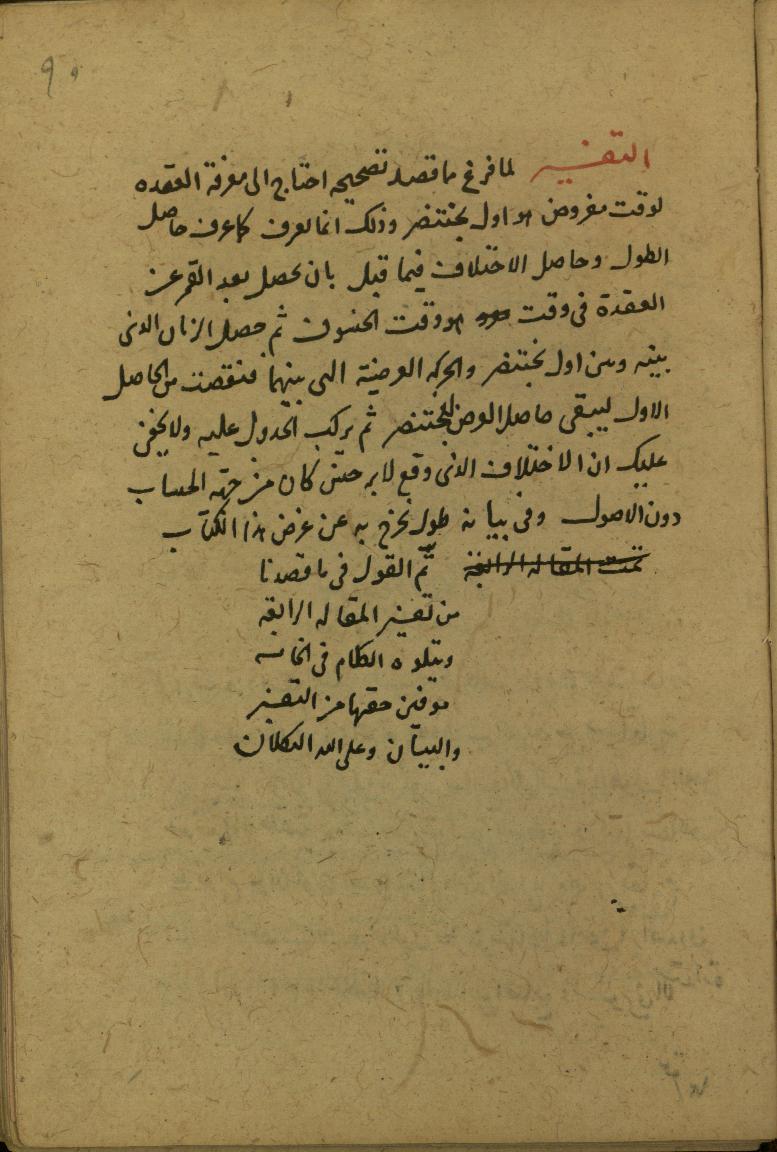 ٩٠
التفسير لما فرغ ما قصد تصحيحه احتاج الى معرفة العقده
لوقت مفروض هو اول بختنصر وذلك انما يعرف كما عرف حاصل
الطول وحاصل الاختلاف فيما قبل بان يحصل بعد القمر عن
العقدة فى وقت هو وقت الخسوف ثم حصل الزمان الذى
بينه وبين اول بختنصر والحركه العرضية التى بينهما فنقصت من الحاصل
الاول ليبقى حاصل العرض لبختنصر ثم يركب الجدول عليه ولا يخفى
عليك ان الاختلاف الذى وقع لابرخس كان من جهة الحساب
دون الاصول وفى بيانه طول نخرج به عن غرض هذا الكتاب
تمت المقاله الرابعة تم القول فى ما قصدنا
من تفسير المقاله الرابعه
ويتلوه الكلام فى الخامسه
موفين حقها من التفسير
والبيان وعلى الله التكلان